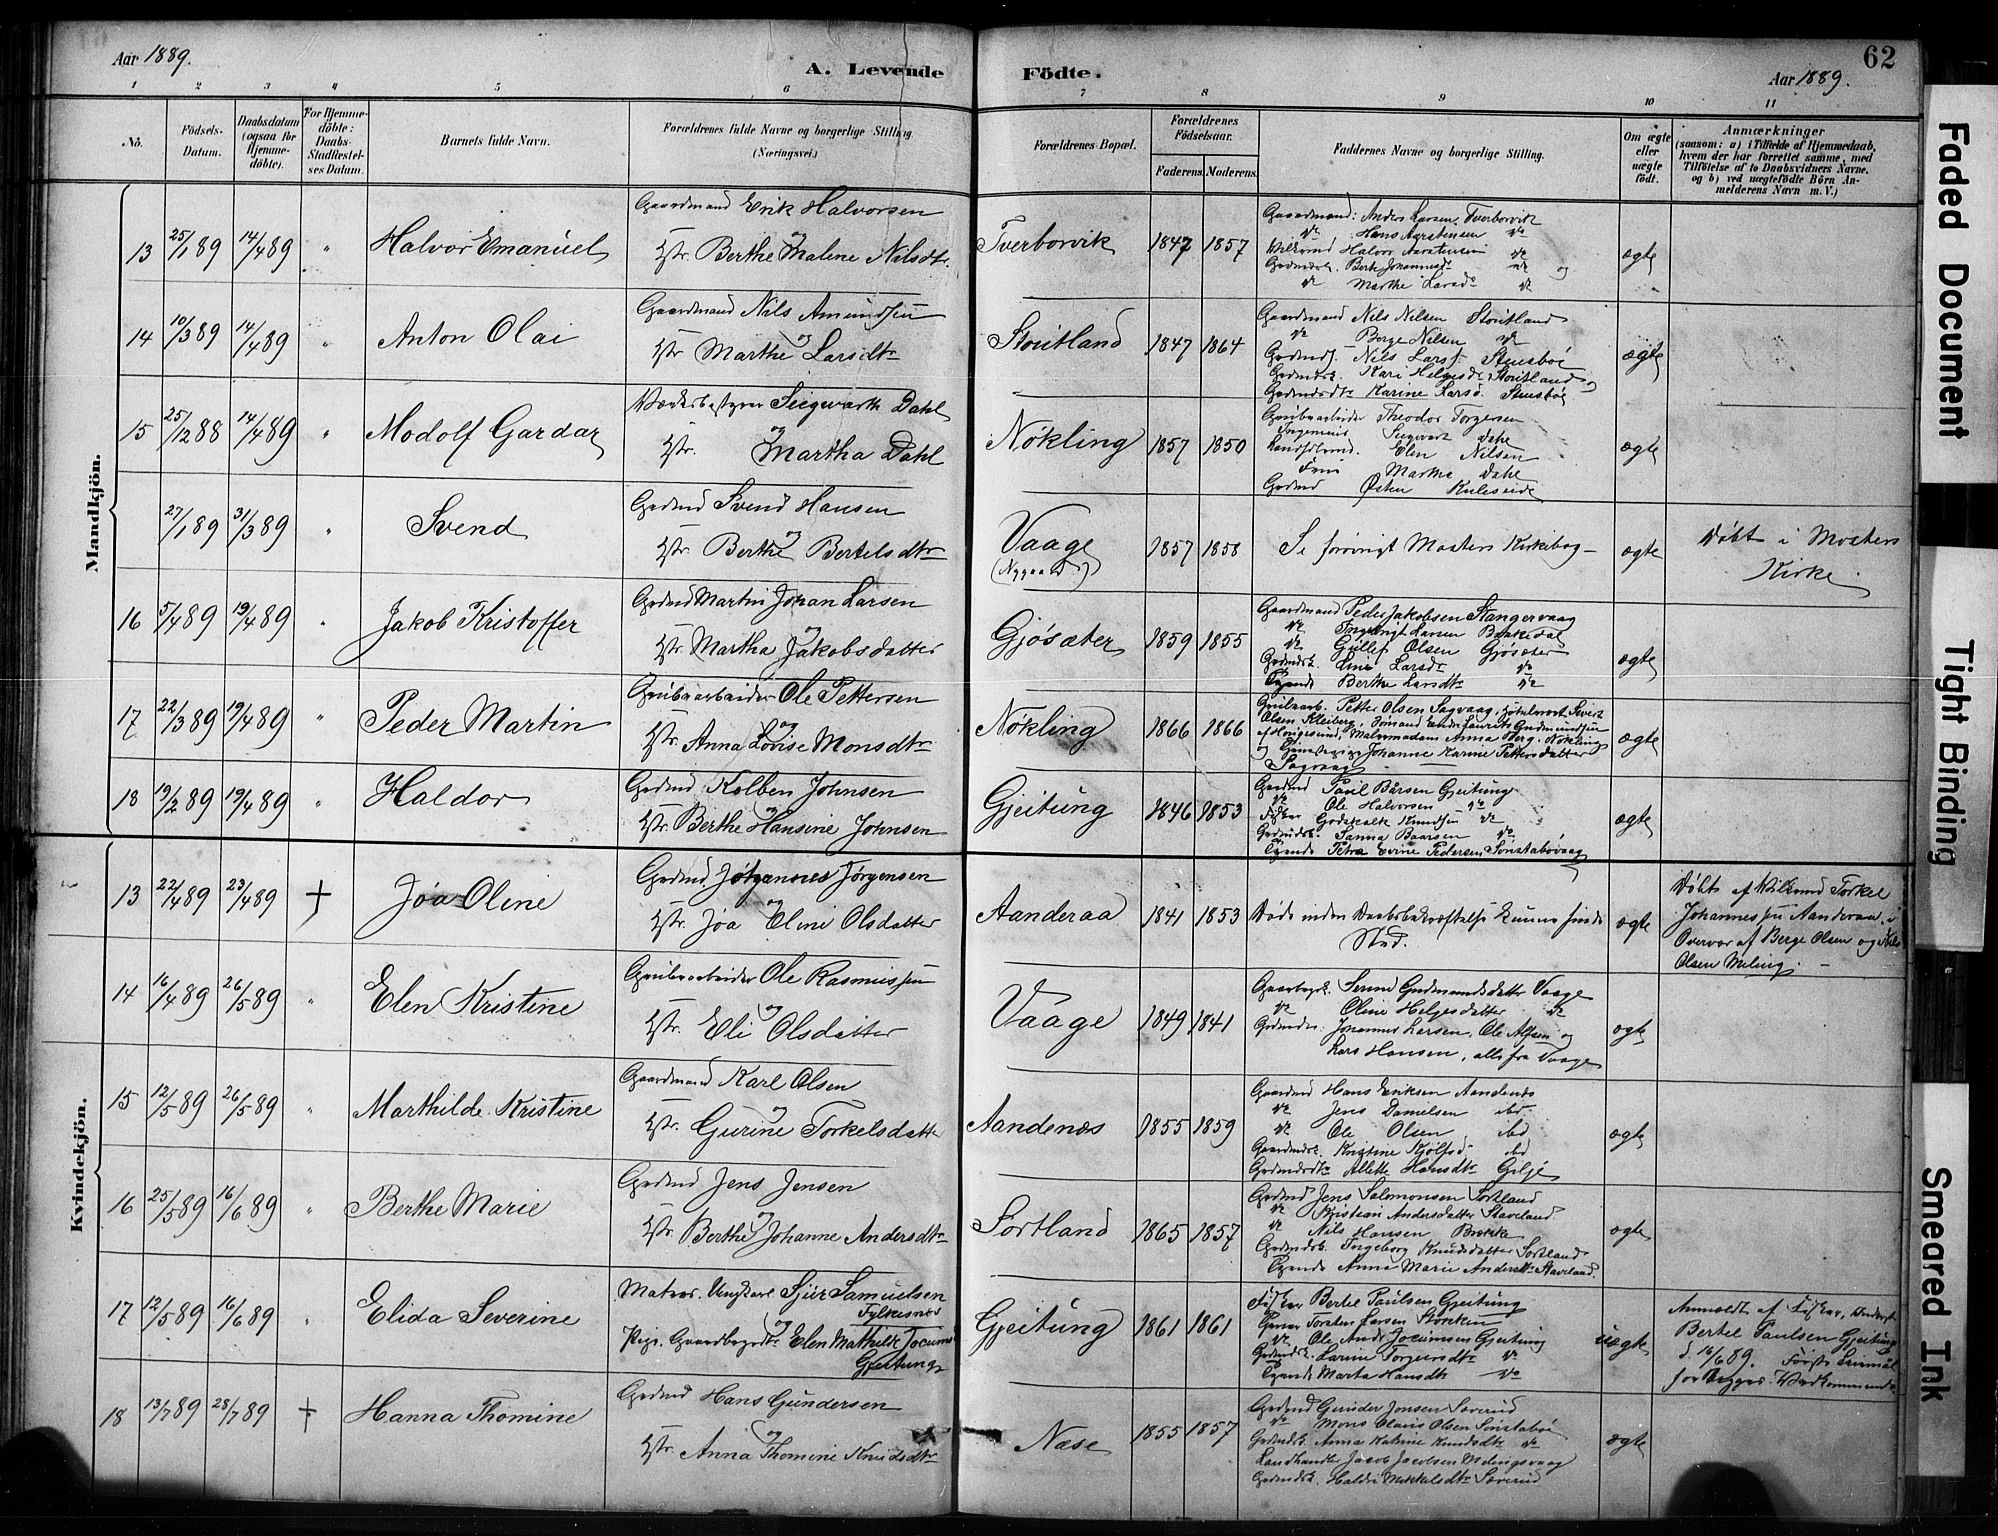 Aar 1889.
A. Levende Födte.
Aar 1889.
62
1 2 3 4 5 6 7 8 9 10 11
No.
Födsels-Datum.
Daabsdatum (ogsaa for Hjemmedöbte).
For Hjemmedöbte: Daabs-Stadfæstelses Datum.
Barnets fulde Navn.
Forældrenes fulde Navne og borgerlige Stilling.
(Næringsvei.)
Forældrenes Bopæl.
Forældrenes Födselsaar.
Faderens. Moderens.
Faddernes Navne og borgerlige Stilling.
Om ægte eller uægte født.
Anmærkninger
(saasom: a) i Tilfælde af Hjemmedaab,
hvem der har forrettet samme, med
Tilföielse af to Daabsvidners Navne.
og b) ved uægtefödte Börn An-
melderens Navn m. V.)
Mandkjön.
13 25/1 89 14/4 89 " Halvor Emanuel
Gaardmand Erik Halvorsen
og
Hstr. Berthe Malene Nilsdtr.
Tverborvik 1847 1857
Gaardmand: Anders Larsen, Tverborvik
do Hans Aarstensen do
Halvor Aarstensen do
do og
do Marthe Larsdr do
ægte
14 10/3 89 14/4 89 " Anton Olai
Gaardmand Nils Amundsen
og
Hstr. Marthe Larsdtr
Stoutland 1847 1864
Gaardmand Nils Nilsen Stoutland
do Børge Nilsen do
Nils Larss. Stensbøe
Kari Helgesdr Stoutland og
Karine Larsd. Stensbøe
ægte
15 25/12 88 14/4 89 " Modolf Gardar
Værksbestyrer Siegwarth Dahl
og
Hstr. Martha Dahl
Nökling 1857 1850
Grubearbeider Theodor Torgersen
Siegwart Dahl
Elen Nilsen
Fru Martha Dahl
Grdmd Østen Kuleseide
ægte
27/1 89 31/3 89 " Svend
Grdmd Svend Hansen
og
Hstr. Berthe Bertelsdtr
Vaage
(Nygaard)
1857 1858
Se forøvrigt Mosters Kirkebog -
ægte
Døbt i Mosters
Kirke.
16 5/4 89 19/4 89 " Jakob Kristoffer
Grdmd Martin Johan Larsen
og
Hstr. Martha Jakobsdatter
Gjösæter 1859 1855
Gaardmand Peder Jakobsen Stangervaag
do Larsen
do Olsen Gjösæter
Larsdr do
Berthe Larsdtr do
ægte
17 22/3 89 19/4 89 " Peder Martin
Grubearbeider Ole Pettersen
og
Hstr. Anna Lovise Monsdtr
Nökling 1866 1866
Grubearb. Petter Olsen Sagvaag,
Olsen Kleiberg, Laurits Gudmundsen
Anna Berg, Nökling
og Johanne Karine Pettersdatter
Sagvaag
ægte
18 19/2 89 19/4 89 " Haldor
Grdmd Kolben Johnsen
og
Hstr. Berthe Hansine Johnsen
Gjeitung 1846 1853
Grdmd Poul Baarsen Gjeitung
do Ole Halvorsen do
Fisker Godskalk Knudsen do
Sanna Baarsen do
Petra Evine Pedersen Sønstabøvaag
ægte
Kvindekjön.
13 22/4 89 23/4 89 † Joa Oline
Grdmd. Johannes Jörgensen
og
Hstr. Joa Eline Olsdatter
Aanderaa 1841 1853
Døde inden Daabsbekræftelse kunne finde
Sted.
ægte
Døbt af Torkel
Johannessen Aanderaa, i
Overvær af Berge Olsen og Nils
Olsen Meling. -
14 16/4 89 26/5 89 " Elen Kristine
Grubearbeider Ole Rasmussen
og
Hstr. Eli Olsdatter
Vaage 1849 1841
Serine Gudmundsdatter Vaage
do Oline Helgesdatter do
Johannes Larsen, Ole Alfsen og
Lars Hansen, alle fra Vaage
ægte
15 12/5 89 26/5 89 " Marthilde Kristine
Gaardmand Karl Olsen
og
Hstr. Gurine Torkelsdatter
Aandenæs 1855 1859
Gaardmd Hans Eriksen Aandenæs
do Jens Danielsen ibd.
do Ole Olsen ibd
Kristine ibd
Allette Hansdtr Gilje
ægte
16 25/5 89 16/6 89 " Berthe Marie
Grdmd Jens Jensen
og
Hstr. Berthe Johanne Andersdtr
Sortland 1865 1857
Grdmd Jens Salomonsen Sortland
do Kristian Andersdatter Staveland.
do Nils Hansen
Ingeborg Knudsdatter Sortland
Anna Marie Andersdtr Staveland.
ægte
17 12/5 89 16/6 89 " Elida Severine
Matros. Ungkarl Sjur Samuelsen
Fylkesnæs
og
Pige. Elen Mathilde
Gjeitung
Gjeitung 1861 1861
Fisker Bertel Paulsen Gjeitung
Torsten Larsen
do Ole Andr. Gjeitung
Larine Torgersdtr do
Marta Hansdtr do
uægte
Anmeldt af Fisker,
Bertel Paulsen Gjeitung
d. 16/6 89.
for begge
18 13/7 89 28/7 89 † Hanna Thomine
Grdmd Hans Gundersen
og
Hstr. Anna Thomine Knudsdtr
Næse 1855 1857
Grdmd Gunder Jonsen Sæverud
do Mons Claus Olsen Sønstabø
Anna Katrine Knudsdtr do
Jacob Jacobsen Melingsvaag
Haldri Mikkelsdtr Sæverud
ægte
Faded Document
Tight Binding
Smeared Ink